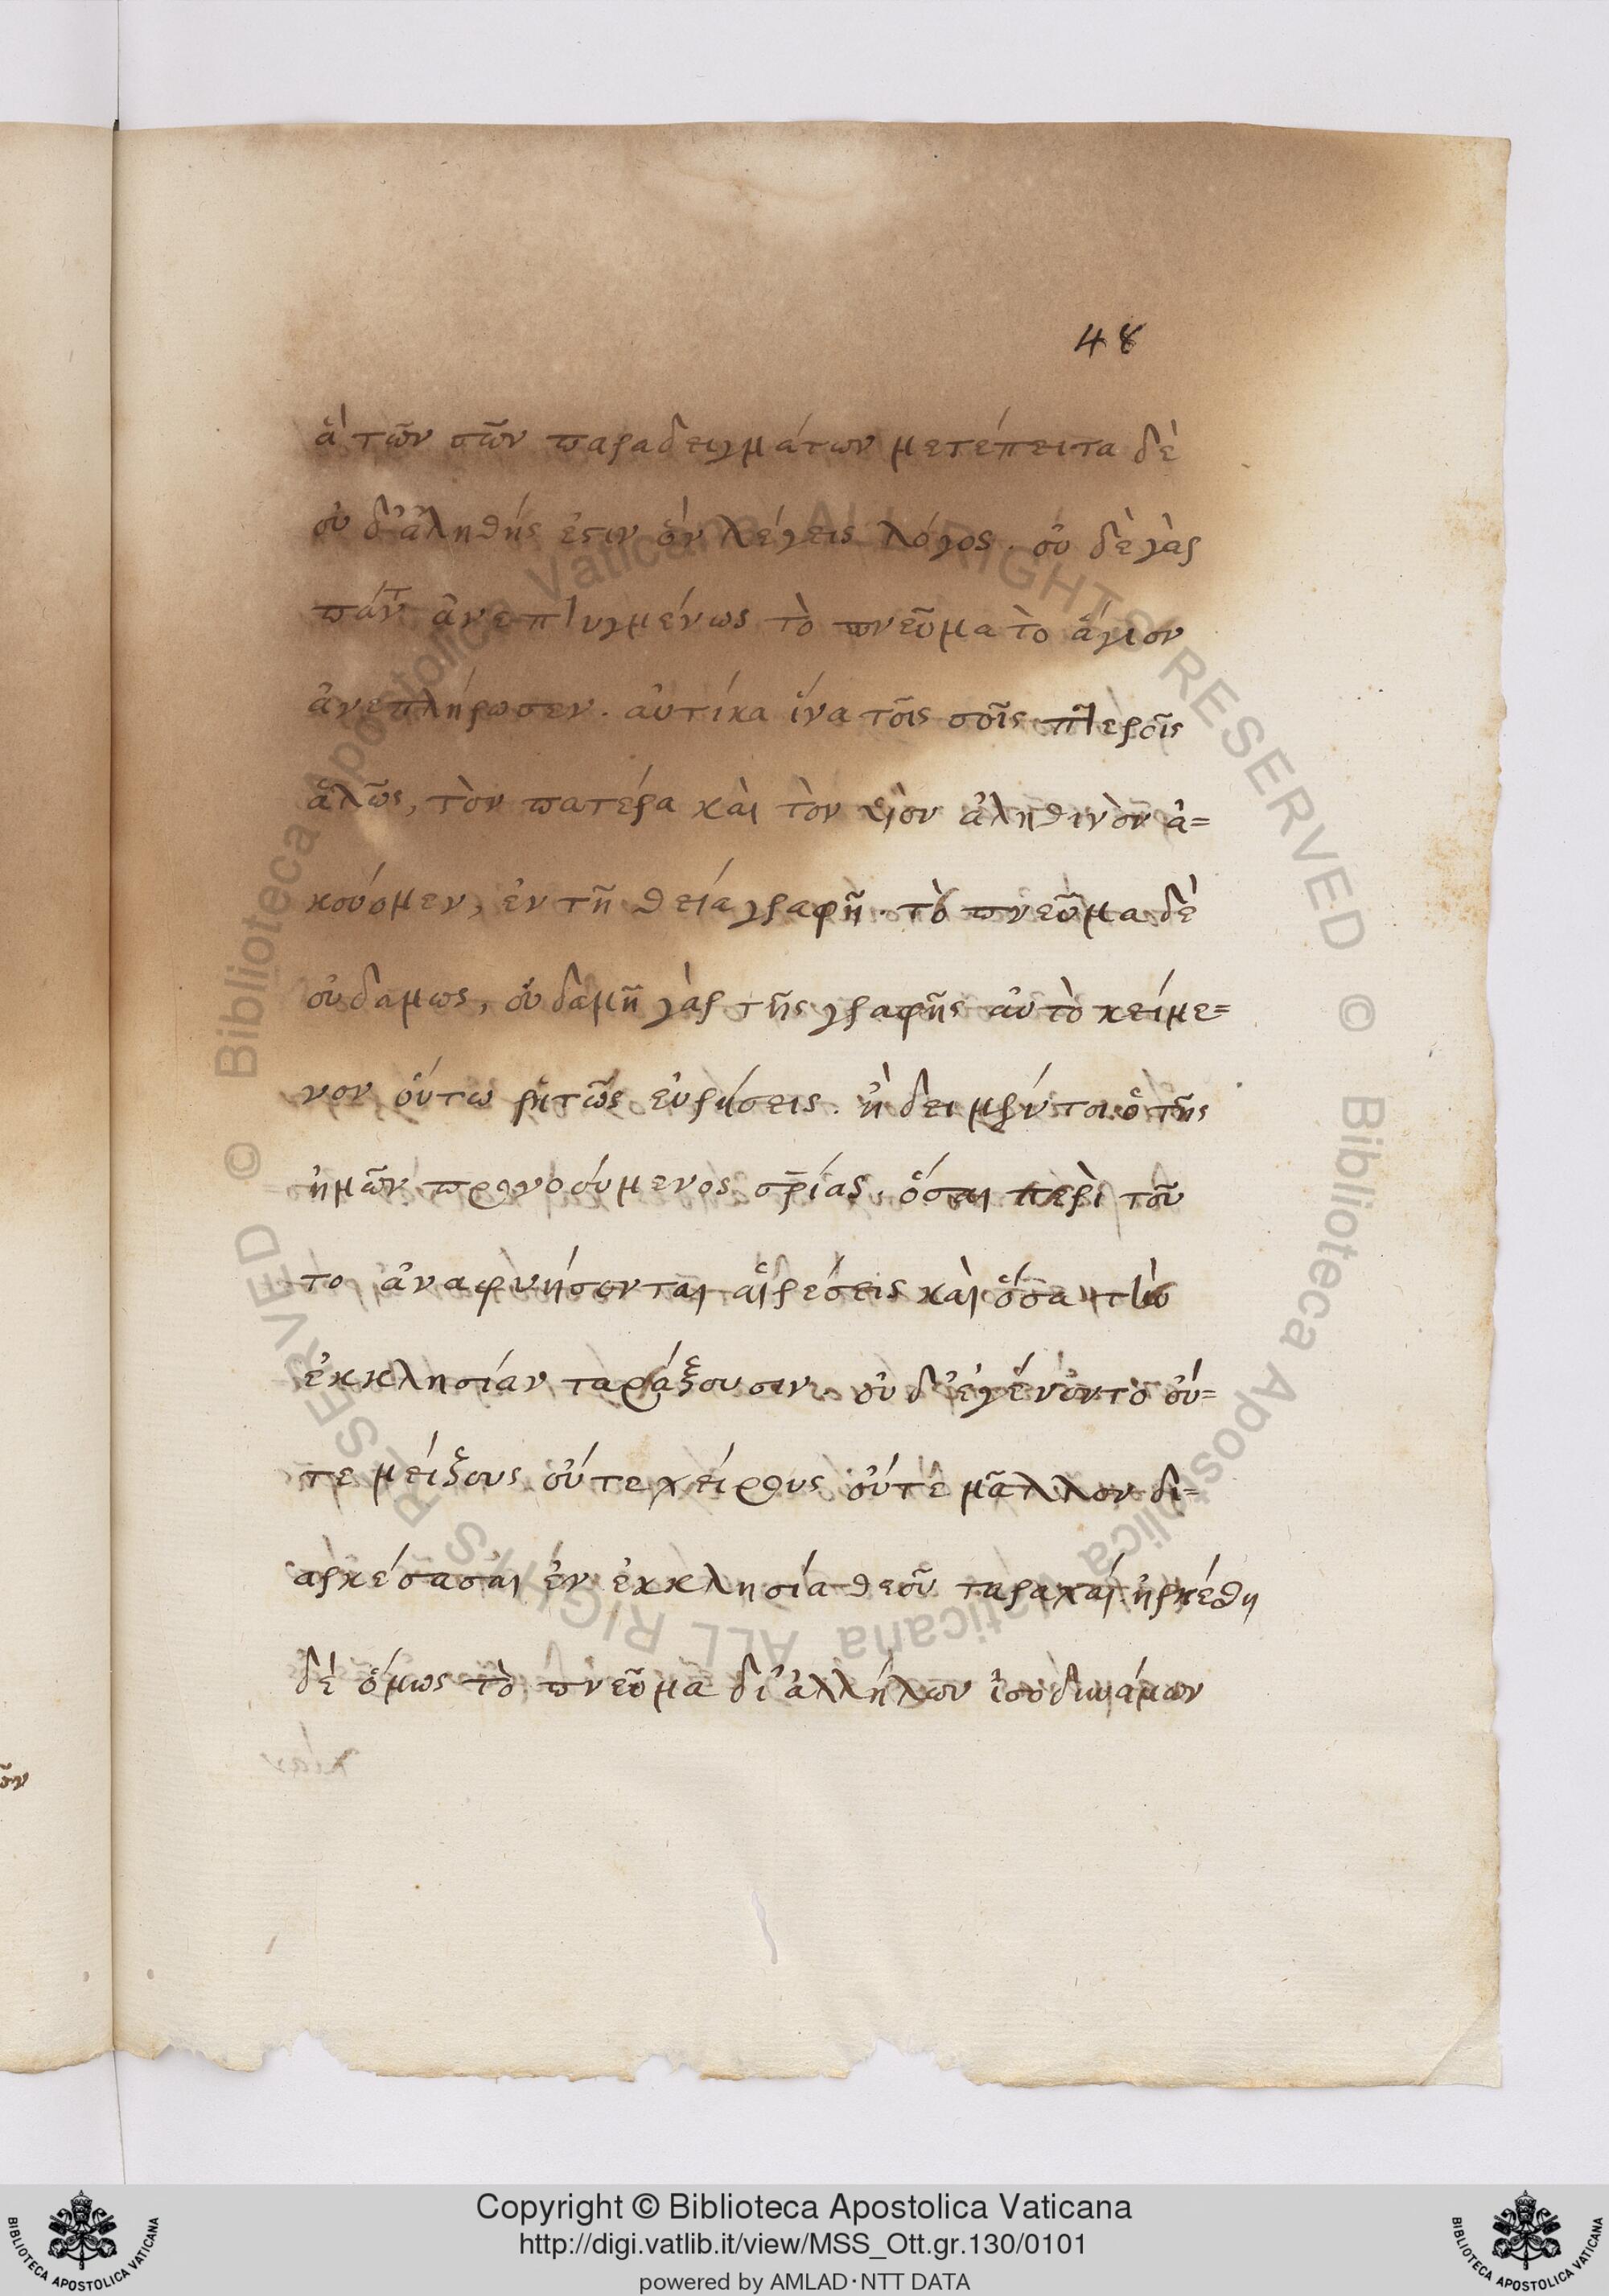 48
ἃ τῶν σῶν παραδειγμάτων μετέπειτα δὲ
οὐδ' ἀληθής ἐστιν ὃν λέγεις λόγος. οὐδὲ γὰρ
πάντ ἀνεπτυγμένως τὸ πνεῦμα τὸ ἅγιον
ἀνεπλήρωσεν. αὐτίκα ἵνα τοῖς σοῖς πτεροῖς
ἁλῶς, τὸν πατέρα καὶ τὸν υἱὸν ἀληθινὸν ἀ=
κούομεν, ἐν τῆ θεία γραφῆ. τὸ πνεῦμα δὲ
οὐδαμως, οὐδαμῆ γὰρ τῆς γραφῆς αὐτὸ κείμε=
νον οὕτω ῥητῶς εὑρήσεις. ἤδει μέντοι ὁ τῆς
ἡμῶν προνοούμενος σρίας, ὅσαι περὶ τοῦ
το ἀναφυήσονται αἱρέσεις καὶ ὅσα τὴν
ἐκκλησίαν ταράξουσιν. οὐδ' ἐγένοντο οὔ=
τε μείζους οὔτε χείρους οὔτε μᾶλλον δι=
αρκέσασαι ἐν ἐκκλησία θεοῦ ταραχαί. ἠρκέθη
δὲ ὅμως τὸ πνεῦμα δι' ἀλλήλων ἰσοδυνάμων
ῶν
Copyright © Biblioteca Apostolica Vaticana
http://digi.vatlib.it/view/MSS_Ott.gr.130/0101
powered by AMLAD·NTT DATA
BIBLIOTECA APOSTOLICA VATICANA
BIBLIOTECA APOSTOLICA VATICANA
© Biblioteca Apostolica Vaticana ALL RIGHTS RESERVED © Biblioteca Apostolica Vaticana ALL RIGHTS RESERVED